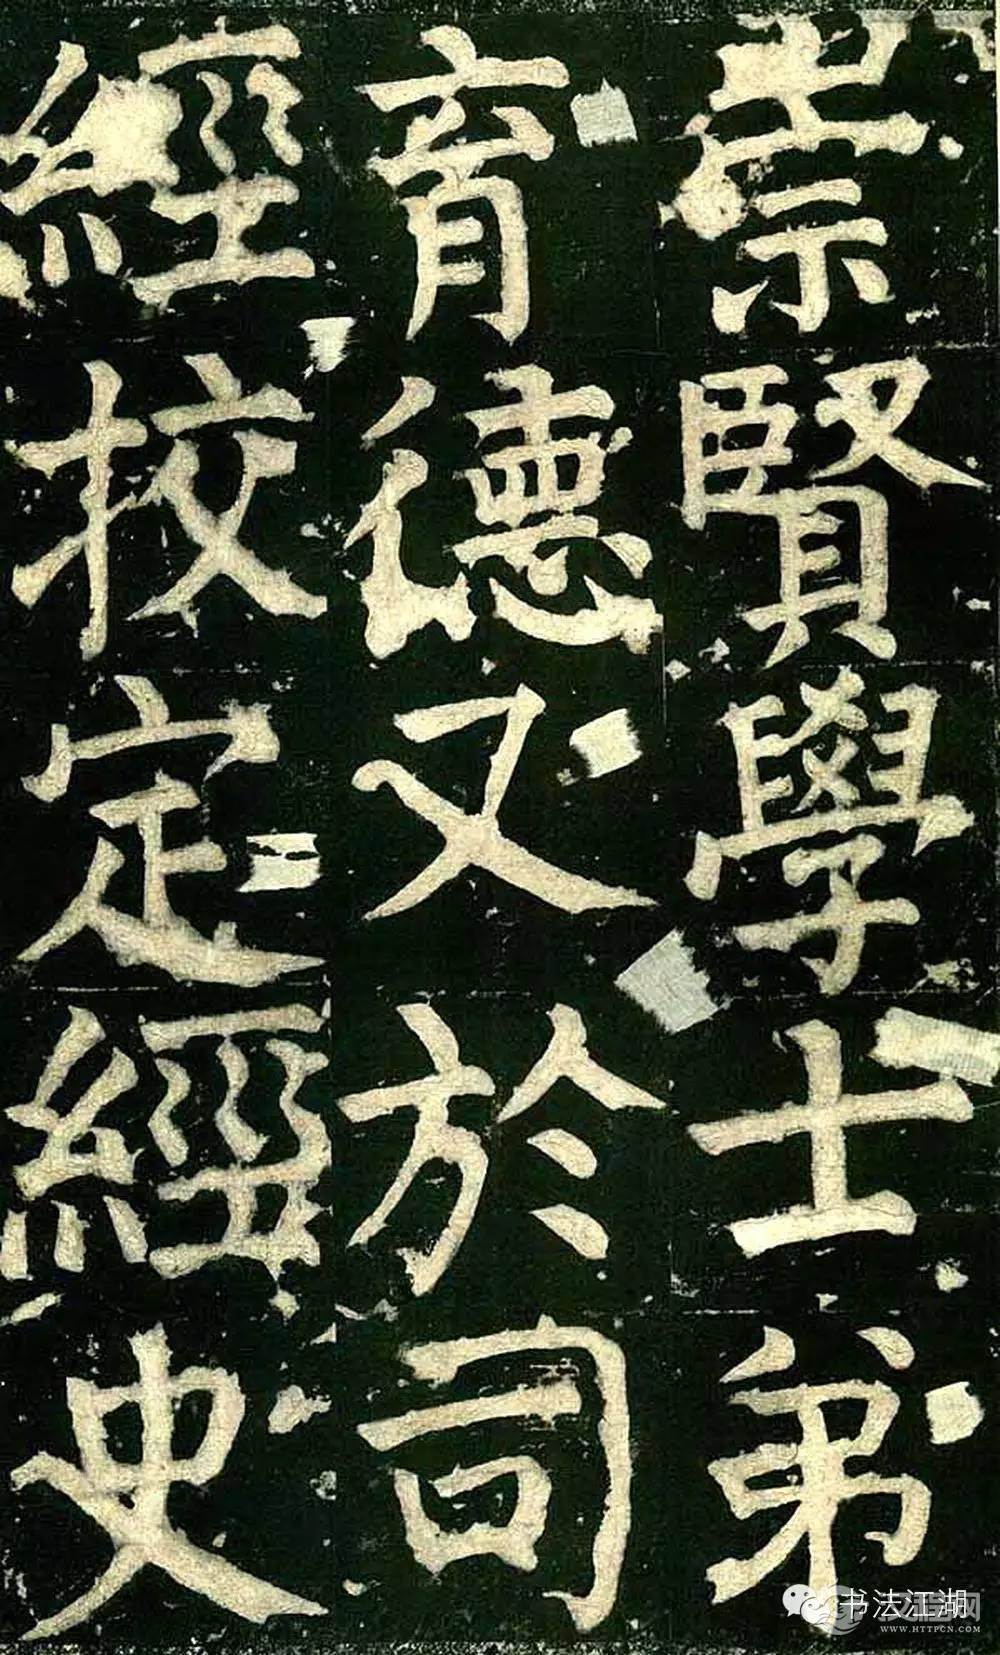 崇賢學士弟
育德又於司
經校定經史
书法江湖
汉程网
WWW.HTTPCN.COM